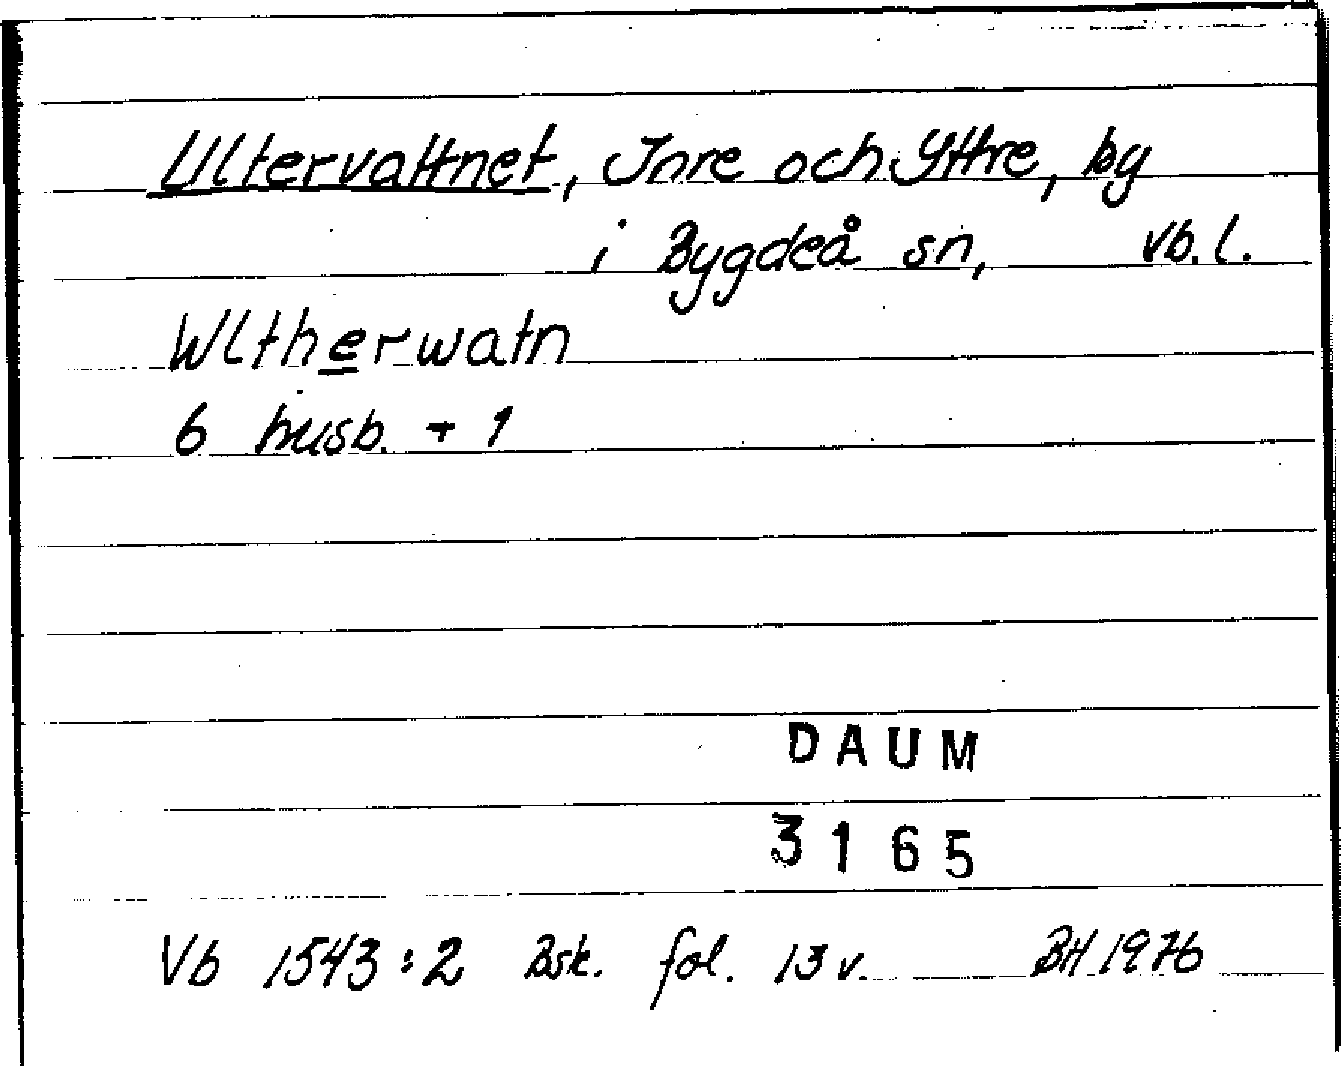 Ultervattnet, Inre och Yttre, by
i Bygdeå sn, Vb. l.
Wltherwatn
6 husb. + 1
DAUM
3165
Vb 1543:2 Bsk. fol. 13 v. BH 1976